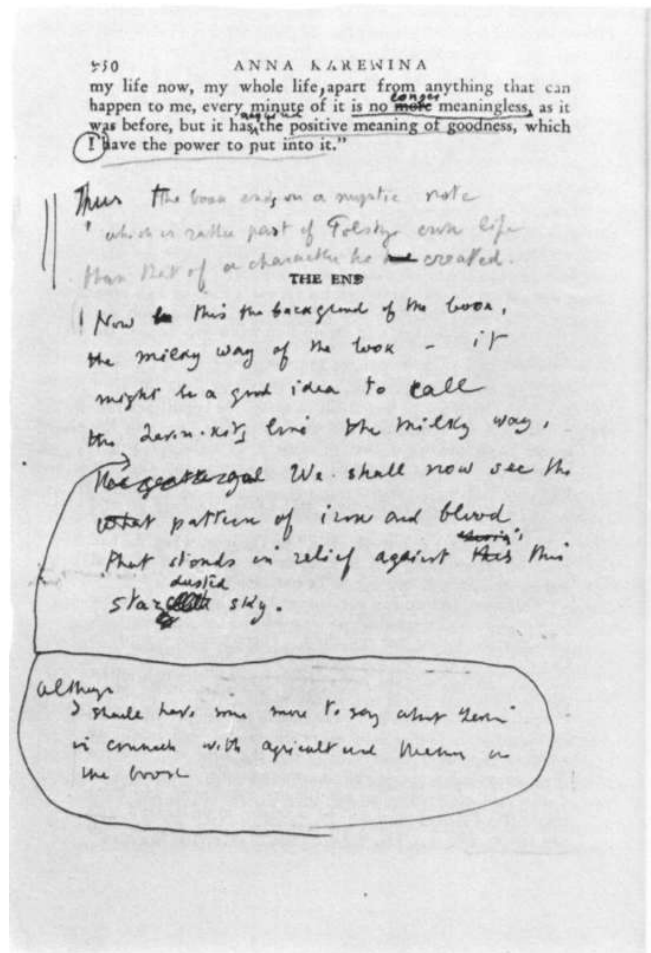 950 ANNA KARENINA
my life now, my whole life, apart from anything that can
longer
happen to me, every minute of it is no more meaningless, as it
acquired
was before, but it has the positive meaning of goodness, which
I have the power to put into it."
Thus the book ends on a mystic note
which is rather part of Tolstoy's own life
than that of a character he created.
THE END
Now this the background of the book,
the milky way of the book - it
might be a good idea to call
the Levin-Kity line the milky way.
We shall now see the
what pattern of iron and blood
that stands in relief against this this
dusted
star sky.
although
I should have some more to say about Levin
in connection with agricultural matters in
the book